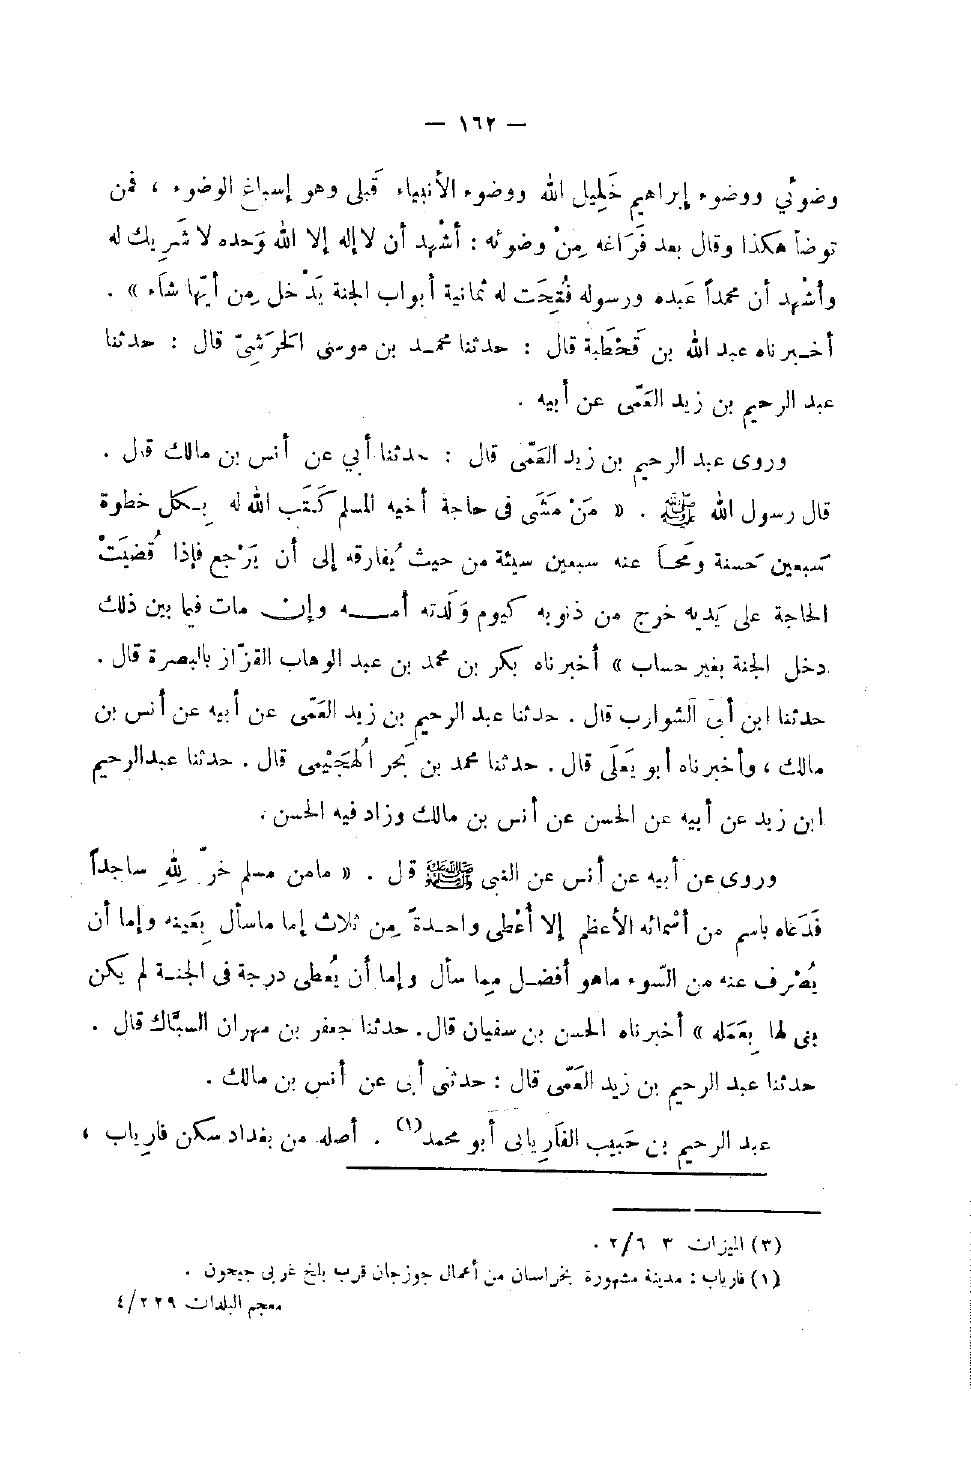 — ١٦٢ —
وضوئي ووضوء إبراهيم خَلِيل الله ووضوء الأنبياء قَبلى وهو إسباغ الوضوء ، فمن
توضأ هكذا وقال بعد فَرَاغه مِنْ وضوئه : أشْهد أن لا إله إلا الله وَحده لا شَرِيك له
وأشْهد أن محمداً عَبده ورسوله فُتِحَت له ثمانية أبواب الجنة يَدْخل مِن أيّها شاَء » .
أخـبر ناه عبد الله بن قَحْطَبة قال : حدثنا محمـد بن موسى الحَرَشِىّ قال : حدثنا
عبد الرحيم بن زيد العَمّى عن أبيه .
وروى عبد الرحيم بن زيد العَمّى قال : حدثنا أبي عن أنس بن مالك قال .
قال رسول الله ﷺ . « مَنْ مَشَى فى حاجة أخيه المسلم كَتَب الله له بِـكل خطوة
سَبعين حَسنة ومَحـاَ عنه سبعين سيئة من حيث يُفارقه إلى أن يَرْجع فإذا قُضيَتْ
الحاجة على يَديه خرج من ذنوبه كيوم وَلَدته أمـــه وإن مات فيما بين ذلك
دخل الجنة بغير حساب » أخبر ناه بكر بن محمد بن عبد الوهاب القزّاز بالبصرة قال .
حدثنا ابن أبى الشوارب قال . حدثنا عبد الرحيم بن زيد العَمّى عن أبيه عن أنس بن
مالك ، وأخبر ناه أبو يَعلَى قال . حدثنا محمد بن بَحر الهُجَيْمِى قال . حدثنا عبدالرحيم
ابن زيد عن أبيه عن الحسن عن أنس بن مالك وزاد فيه الحسن .
وروى عن أبيه عن أنس عن النبى ﷺ قال . « مامن مسلم خرّ لِلهِ ساجداً
فَدَعاه باسم من أسْمائه الأعظم إلا أُعْطى واحـدةً مِن ثلاث إما ماسأل بِعَينه وإما أن
يُصْرف عنه من السّوء ماهو أفضـل مِما سأل وإما أن يُعطى درجة فى الجنـة لم يكن
بنى لها بِعَمَله » أخبر ناه الحسن بن سفيان قال . حدثنا جعفر بن مهران السبّاك قال .
حدثنا عبد الرحيم بن زيد العَمّى قال : حدثنى أبى عن أنس بن مالك .
عبد الرحيم بن حَبيب الفاَرِيابى أبو محمد(١) . أصله من بغداد سكن فارِياب ،
(٣) الميزان ٣ ٢/٦ .
(١) فارياب : مدينة مشهورة بخراسان من أعمال جوزجان قرب بلخ غربى جيحون .
معجم البلدان ٤/٢٢٩